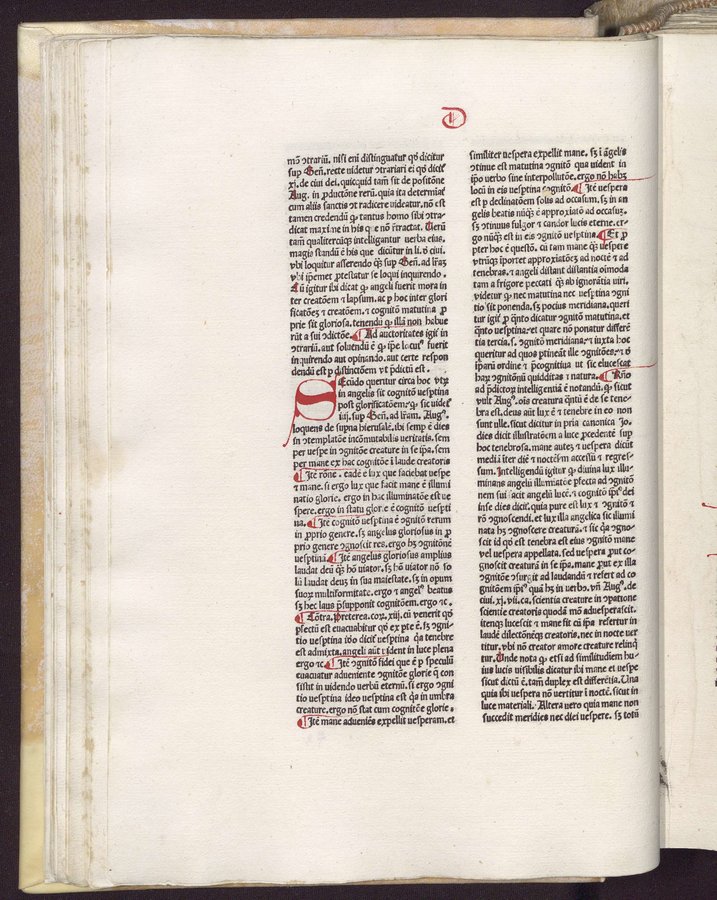 D
mō ɔtrariū. nisi eni distinguatur qď dicitur
sup Gen̄. recte videtur ɔtrariari ei qď dicit̄
xj. de ciui dei. quicquid tam sit de positōne
Aug. in ꝓductōne rerū. quia ita determīat
cum aliis sanctis et radicere videatur. nō est
tamen credendū ꝙ tantus homo sibi ɔtra-
dicat maxime in his que nō r̄tractat. Uerū
tam̄ qualitercūq̄ intelligantur verba eius.
magis standū ē his que dicūtur in li. de ciui.
vbi loquitur asserendo q̄ȝ sup Gen̄. ad lr̄aȝ
vbi ip̄emet ꝓtestatur se loqui inquirendo.
Cū igitur ibi dicat ꝙ angeli fuerit mora in
ter creatōem ⁊ lapsum. ac ꝑ hoc inter glori
ficatōeȝ ⁊ creatōem. ⁊ cognitō matutina ꝓ
prie sit gloriosa. tenendū ꝙ illā non habue
rūt a sui ɔdictōe. ¶ Ad auctoritates igit̄ in
ɔtrariū. aut soluendū ē ꝙ ip̄e locut᷒ fuerit
inquirendo aut opinando. aut certe respon
dendū est ꝑ distinctōem vt p̄dictū est.
Secūdo queritur circa hoc vtꝝ
in angelis sit cognitō vesꝑtina
post glorificatōem. ⁊ ꝙ sic videt̄
iiij. sup Gen̄. ad lr̄am. Aug᷒.
loquens de supna hierusalē. ibi semp ē dies
in ɔtemplatōe incōmutabilis veritatis. sem
per vespe in ɔgnitōe creature in se ip̄a. sem
per mane ex hac cognitōe ī laude creatoris
¶ Itē rōne. eadē ē lux que faciebat vespe
⁊ mane. si ergo lux que facit mane ē illumi
natio glorie. ergo in hac illuminatōe est ve
spere. ergo in statu glorie ē cognitō vesꝑti
na. ¶ Itē cognitō vesꝑtina ē ɔgnitō rerum
in ꝓprio genere. sȝ angelus gloriosus in ꝓ
prio genere ɔgnoscit res. ergo hȝ ɔgnitōnē
vesꝑtinā ¶ Itē angelus gloriosus amplius
laudat deū q̄ȝ hō viator. sȝ hō viator nō so
lū laudat deuȝ in sua maiestate. sȝ in opum
suoꝝ multiformitate. ergo ⁊ angel᷒ beatus
sȝ hec laus p̄supponit cognitōem. ergo ⁊c.
¶ Cōtra. Preterea. cor. xiij. cū venerit qď
ꝑfectū est euacuabitur qď ex pte ē. sȝ ɔgni-
tio vesꝑtina iō dicit̄ vesꝑtina q̄a tenebre
est admixta. angeli aūt vident in luce plena
ergo ⁊c. ¶ Itē ɔgnitō fidei que ē ꝑ speculū
euacuatur adueniente ɔgnitōe glorie q̄ con
sistit in videndo verbū eternū. si ergo ɔgni
tio vesꝑtina ideo vesꝑtina est q̄a in umbra
creature. ergo nō stat cum cognitōe glorie.
¶ Itē mane adueniēs expellit vesperam. et
similiter uespera expellit mane. sȝ ī āgelis
ɔtinue est matutina ɔgnitō qua uident in
ip̄o verbo sine interpollutōe. ergo nō habȝ
locū in eis vesꝑtina ɔgnitō. ¶ Itē vespera
est ꝑ declinatōem solis ad occasum. sȝ in an
gelis beatis nūq̄ȝ ē approxīatō ad occasuȝ.
sȝ ɔtinuus fulgor ⁊ candor lucis eterne. er-
go nūq̄ȝ est in eis ɔgnitō vesꝑtina. ¶ Et ꝓ
pter hoc ē questō. cū tam mane q̄ȝ vespere
vtrūq̄ȝ īportet approxiatōeȝ ad noctē ⁊ ad
tenebras. ⁊ angeli distant distantia oīmoda
tam a frigore peccati q̄ȝ ab ignorātia uiri.
videtur ꝙ nec matutina nec vesꝑtina ɔgni
tio sit ponenda. sȝ pocius meridiana. queri
tur igit̄ ꝑ q̄nto dicatur ɔgnitō matutina. et
q̄nto vesꝑtina. et quare nō ponatur differē
tia tercia. s. ɔgnitō meridiana. ⁊ iuxta hoc
queritur ad quos ptineāt ille ɔgnitōes. ⁊ ď
ip̄arū ordine ⁊ p̄cognitiua ut sic elucescat
haꝝ ɔgnitōnū quidditas ⁊ natura. ¶ Rn̄o
ad p̄dictoꝝ intelligentiā ē notandū. ꝙ sicut
vult Aug᷒. oīs creatura q̄ntū ē de se tene-
bra est. deus aūt lux ē ⁊ tenebre in eo non
sunt ulle. sicut dicitur in pria canonica Jo.
dies dicit illustratōem a luce ꝓcedentē sup
hoc tenebrosa. mane auteȝ ⁊ vespera dicūt
mediā iter diē ⁊ noctē m accessū ⁊ regres-
sum. Intelligendū igitur ꝙ diuina lux illu-
minans angelū illumiatōe ꝑfecta ad ɔgnitō
nem sui facit angelū lucē. ⁊ cognitō ip̄i᷒ dei
inse dies dicit̄. quia pure est lux ⁊ ɔgnitū ⁊
rō ɔgnoscendi. et lux illa angelica sic illumi
nata hȝ ɔgnoscere creaturā. ⁊ sic q̄a ɔgno-
scit id qď est tenebra est eius ɔgnitō mane
vel vespera appellata. sed vespera prout co-
gnoscit creaturā in se ip̄a. mane ꝓut ex illa
ɔgnitōe ɔsurgit ad laudandū ⁊ refert ad co
gnitōem ip̄i᷒ quā hȝ in verbo. vn̄ Aug᷒. de
ciui. xj. vij. ca. scientia creature in ɔpatione
scientie creatoris quodā mō aduesperascit.
itenq̄ȝ lucescit ⁊ mane fit cū ip̄a refertur in
laudē dilectōneq̄ȝ creatoris. nec in nocte ver
titur. vbi nō creator amore creature relinq̄
tur. Unde nota ꝙ etsi ad similitudiem hu-
ius lucis visibilis dicatur ibi mane et vespe
sicut dictū ē. tam̄ duplex est differētia. Una
quia ibi vespera nō uertitur ī noctē. sicut in
luce materiali. Altera vero quia mane non
succedit meridies nec diei vespere. sȝ totū